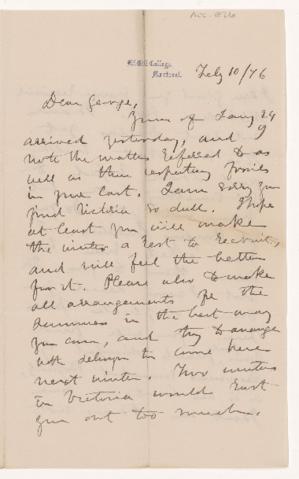 McGill College,
Montreal.
Feby 10/76
Dear George,
Yours of Jany 24
arrived yesterday, and I
note the matters referred to as
well as those respecting fossils
in your last. I am sorry you
find Victoria so dull. I hope
at least you will make
the winter a rest to recruit,
and will feel the better
for it. Please also to make
all arrangements for the
summer in the best way
you can, and try to arrange
with Selwyn to come here
next winter. Two winters
in Victoria would rust
you out too much.